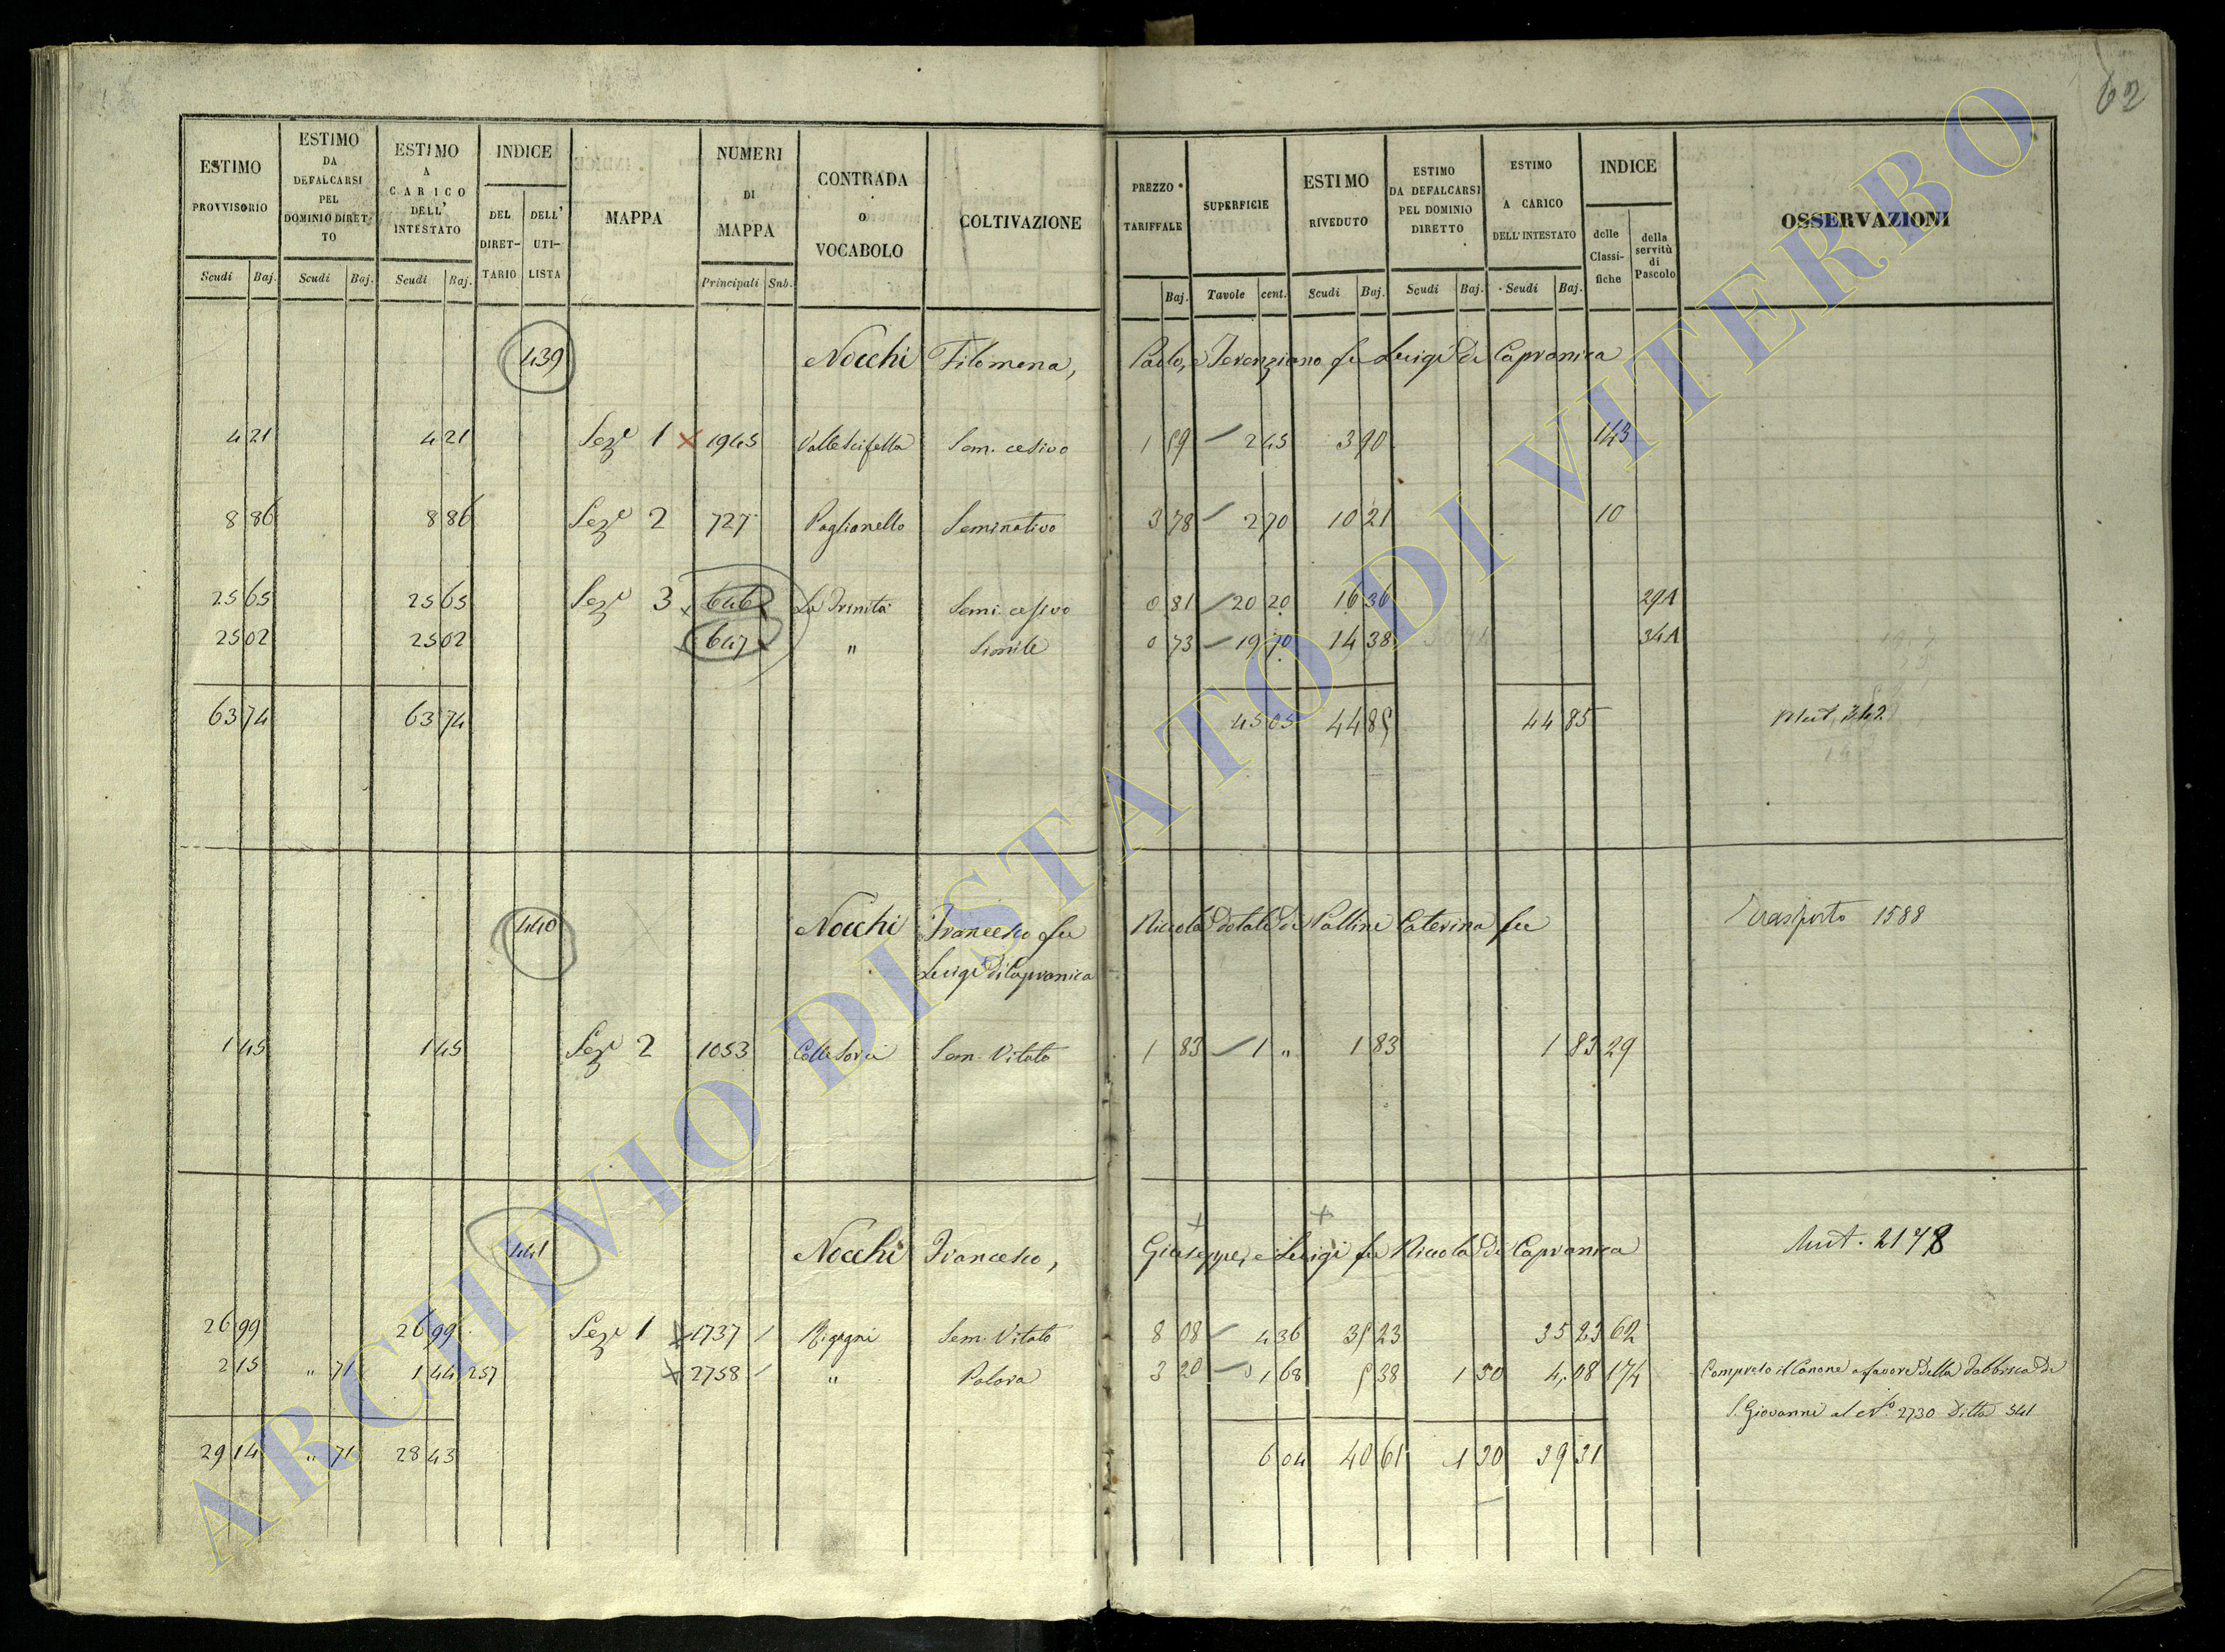 62
ESTIMO PROVVISORIO
ESTIMO DA DEFALCARSI PEL DOMINIO DIRETTO
ESTIMO A CARICO DELL' INTESTATO
INDICE
DEL DIRETTARIO
DELL' UTILISTA
MAPPA
NUMERI DI MAPPA
CONTRADA O VOCABOLO
COLTIVAZIONE
PREZZO TARIFFALE
SUPERFICIE
ESTIMO RIVEDUTO
ESTIMO DA DEFALCARSI PEL DOMINIO DIRETTO
ESTIMO A CARICO DELL' INTESTATO
INDICE
delle Classifiche
della servitù di Pascolo
OSSERVAZIONI
Scudi Baj. Scudi Baj. Scudi Baj. Principali Sub. Baj. Tavole cent. Scudi Baj. Scudi Baj. Scudi Baj.
439 Nocchi Filomena, Paolo, e Terenziano fu Luigi di Capranica
4 21 4 21 Sez.e 1 x 1945 Sem. cesivo 1 59 2 45 3 90 143
8 86 8 86 Sez.e 2 727 Paglianello Seminativo 3 78 2 70 10 21 10
25 65 25 65 Sez.e 3 646 La Trinità Semi. cesivo 0 81 20 20 16 36 29A
25 02 25 02 647 " Simile 0 73 19 70 14 38 34A
63 74 63 74 45 05 44 85 44 85 Mut. 342
440 Nocchi Francesco fu Niccola dotale di Pallini Caterina fu Trasporto 1588
Luigi di Capranica
1 45 1 45 Sez.e 2 1053 Sem. Vitato 1 83 1 " 1 83 1 83 29
441 Nocchi Francesco, Giuseppe, e Luigi fu Niccola di Capranica Mut. 2178
26 99 26 99 Sez.e 1 x 1737 Sem. Vitato 8 08 4 36 35 23 35 23 62
2 15 " 71 1 44 257 x 2758 " 3 20 1 68 5 38 1 30 4,08 174 Compreso il Canone a favore della Fabbrica di
S. Giovanni al N.o 2730 Ditta 341
29 14 " 71 28 43 6 04 40 61 1 30 39 31
ARCHIVIO DI STATO DI VITERBO